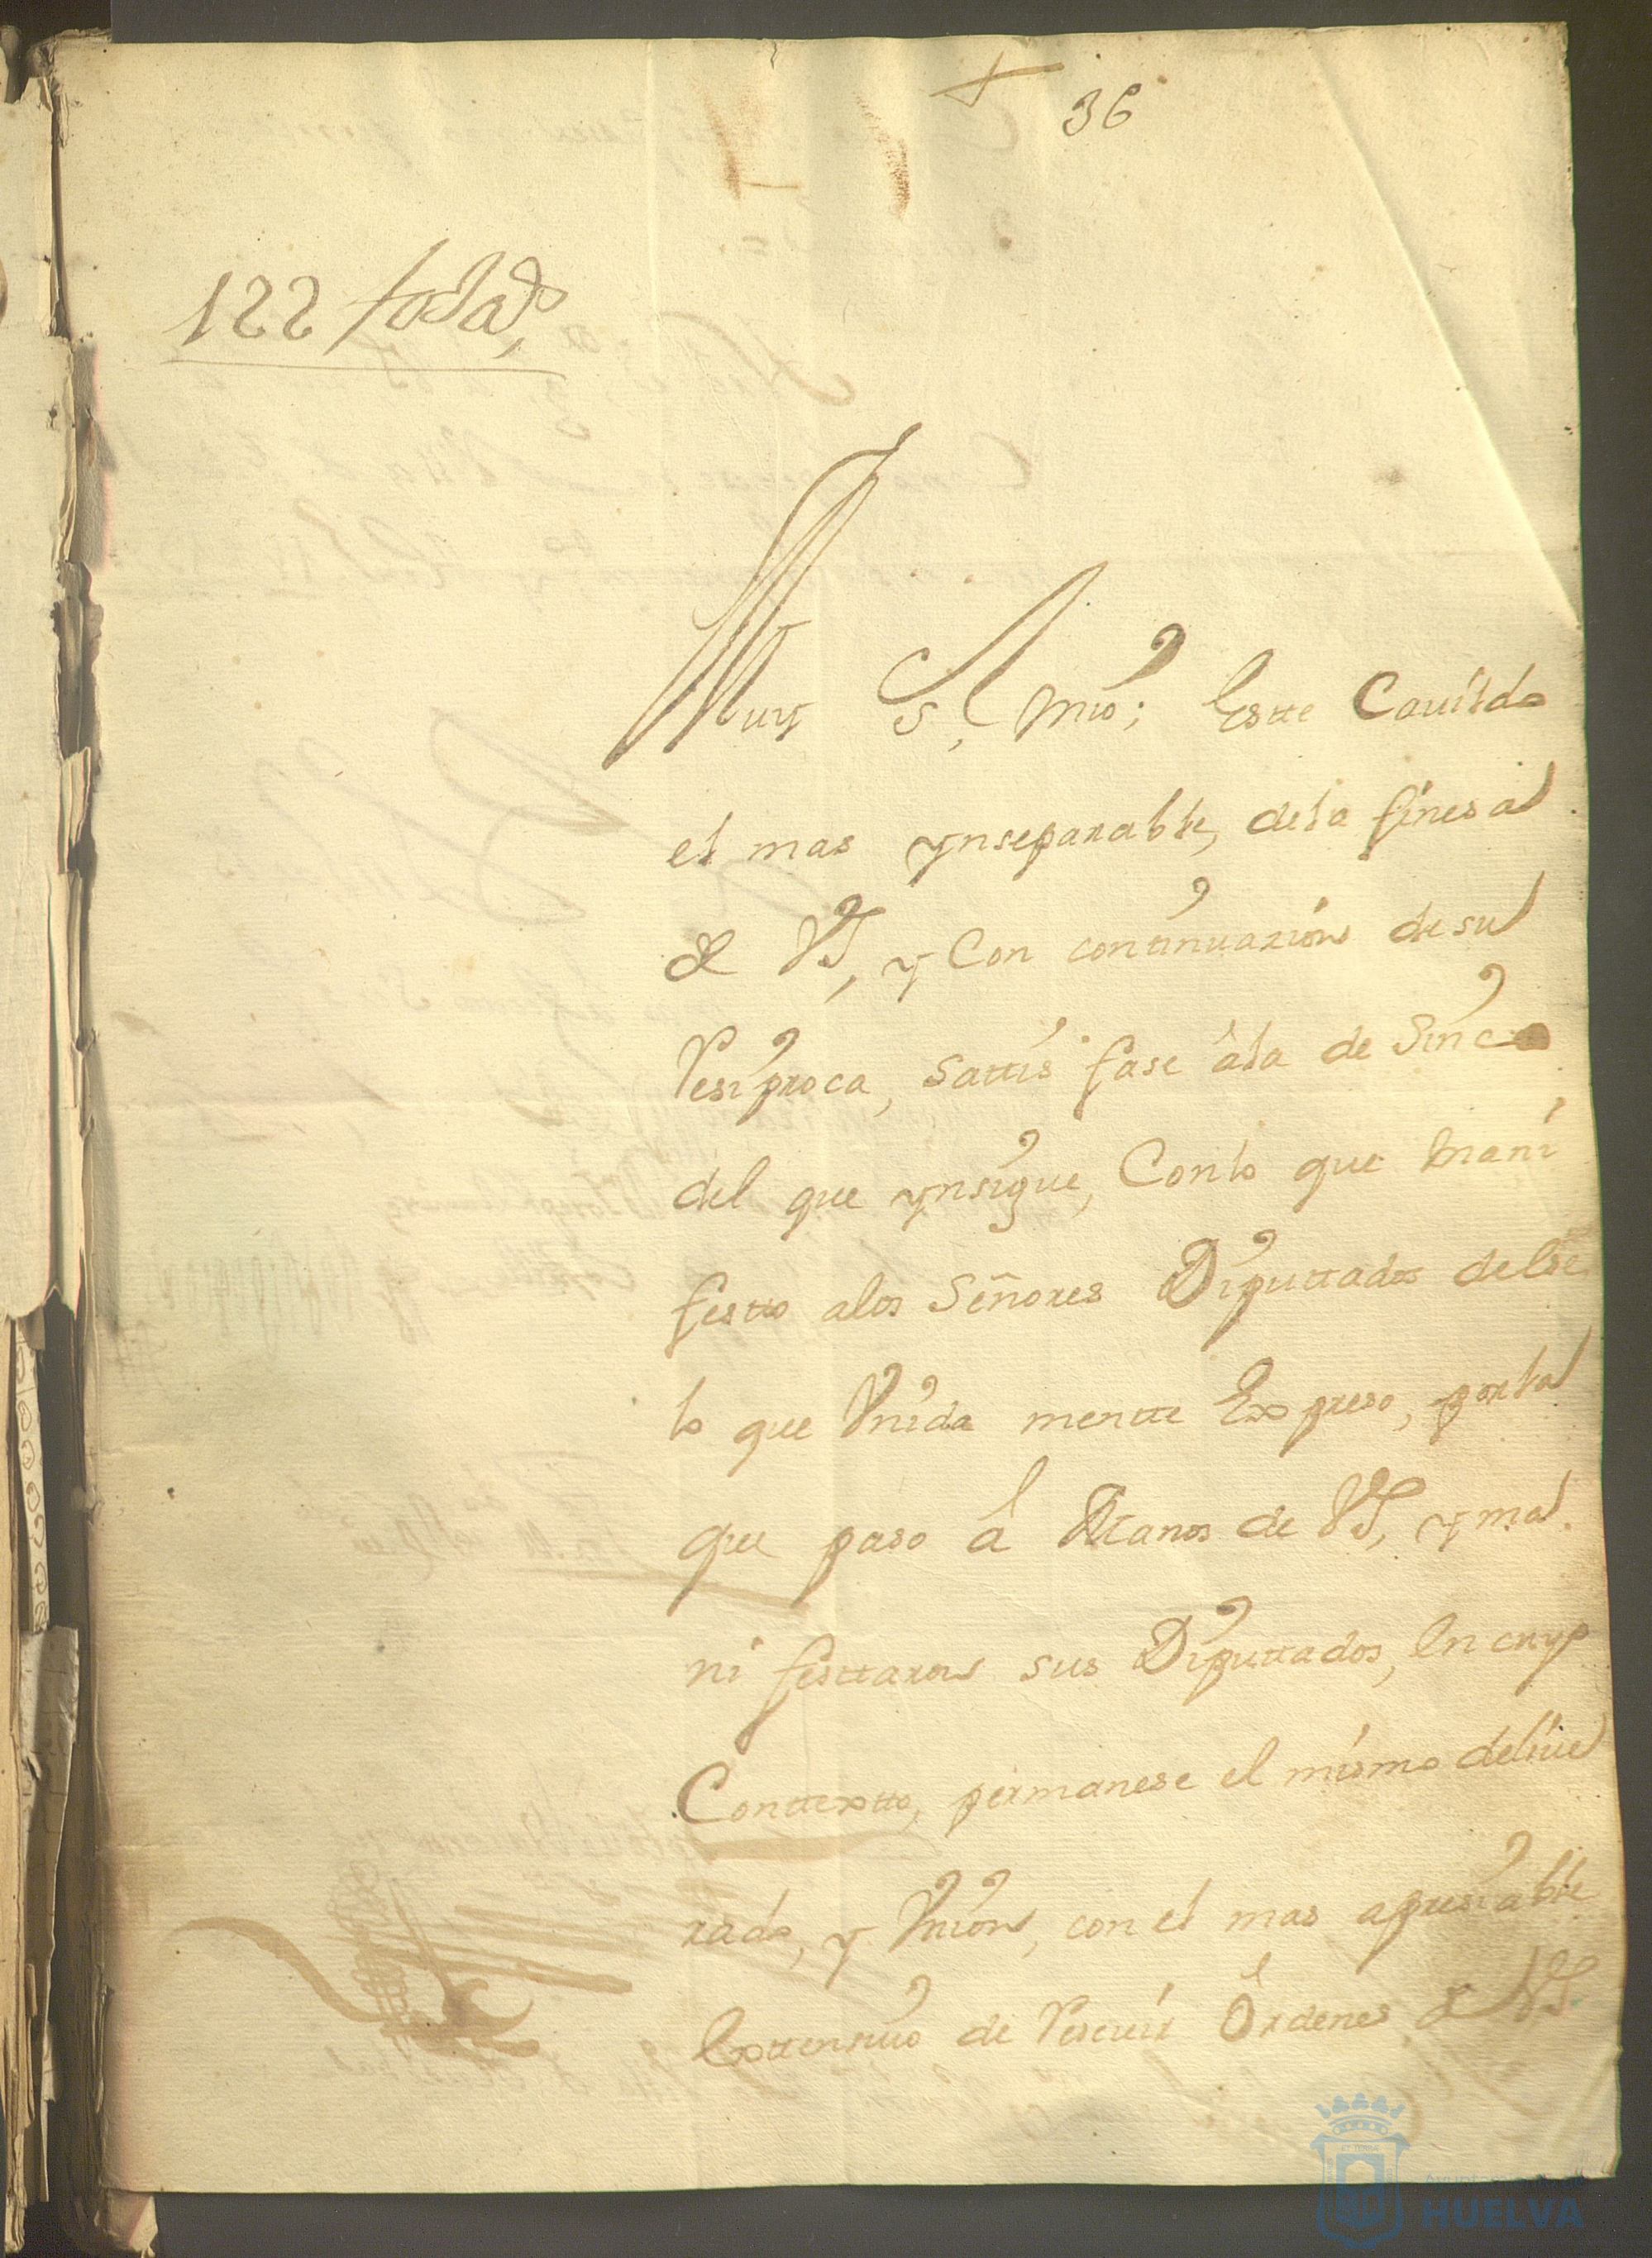 36
122
Muy S. mio; Este Cavildo
el mas ynseparable, dela finesa
de VS, y Con continuazion de su
Resiproca, sattis fase âla de Sinco
del que ynsigue, Con lo que mani
festto alos Señores Diputtados de
lo que Unida mentte Expreso, por la
que paso â Manos de VS, y ma
ni festtaron sus Diputtados, En cuyo
Conttextto, permanese el mismo delive
rado, y Union, con el mas apresiable
Exttensivo de Resevir Ôrdenes de VS
HUELVA